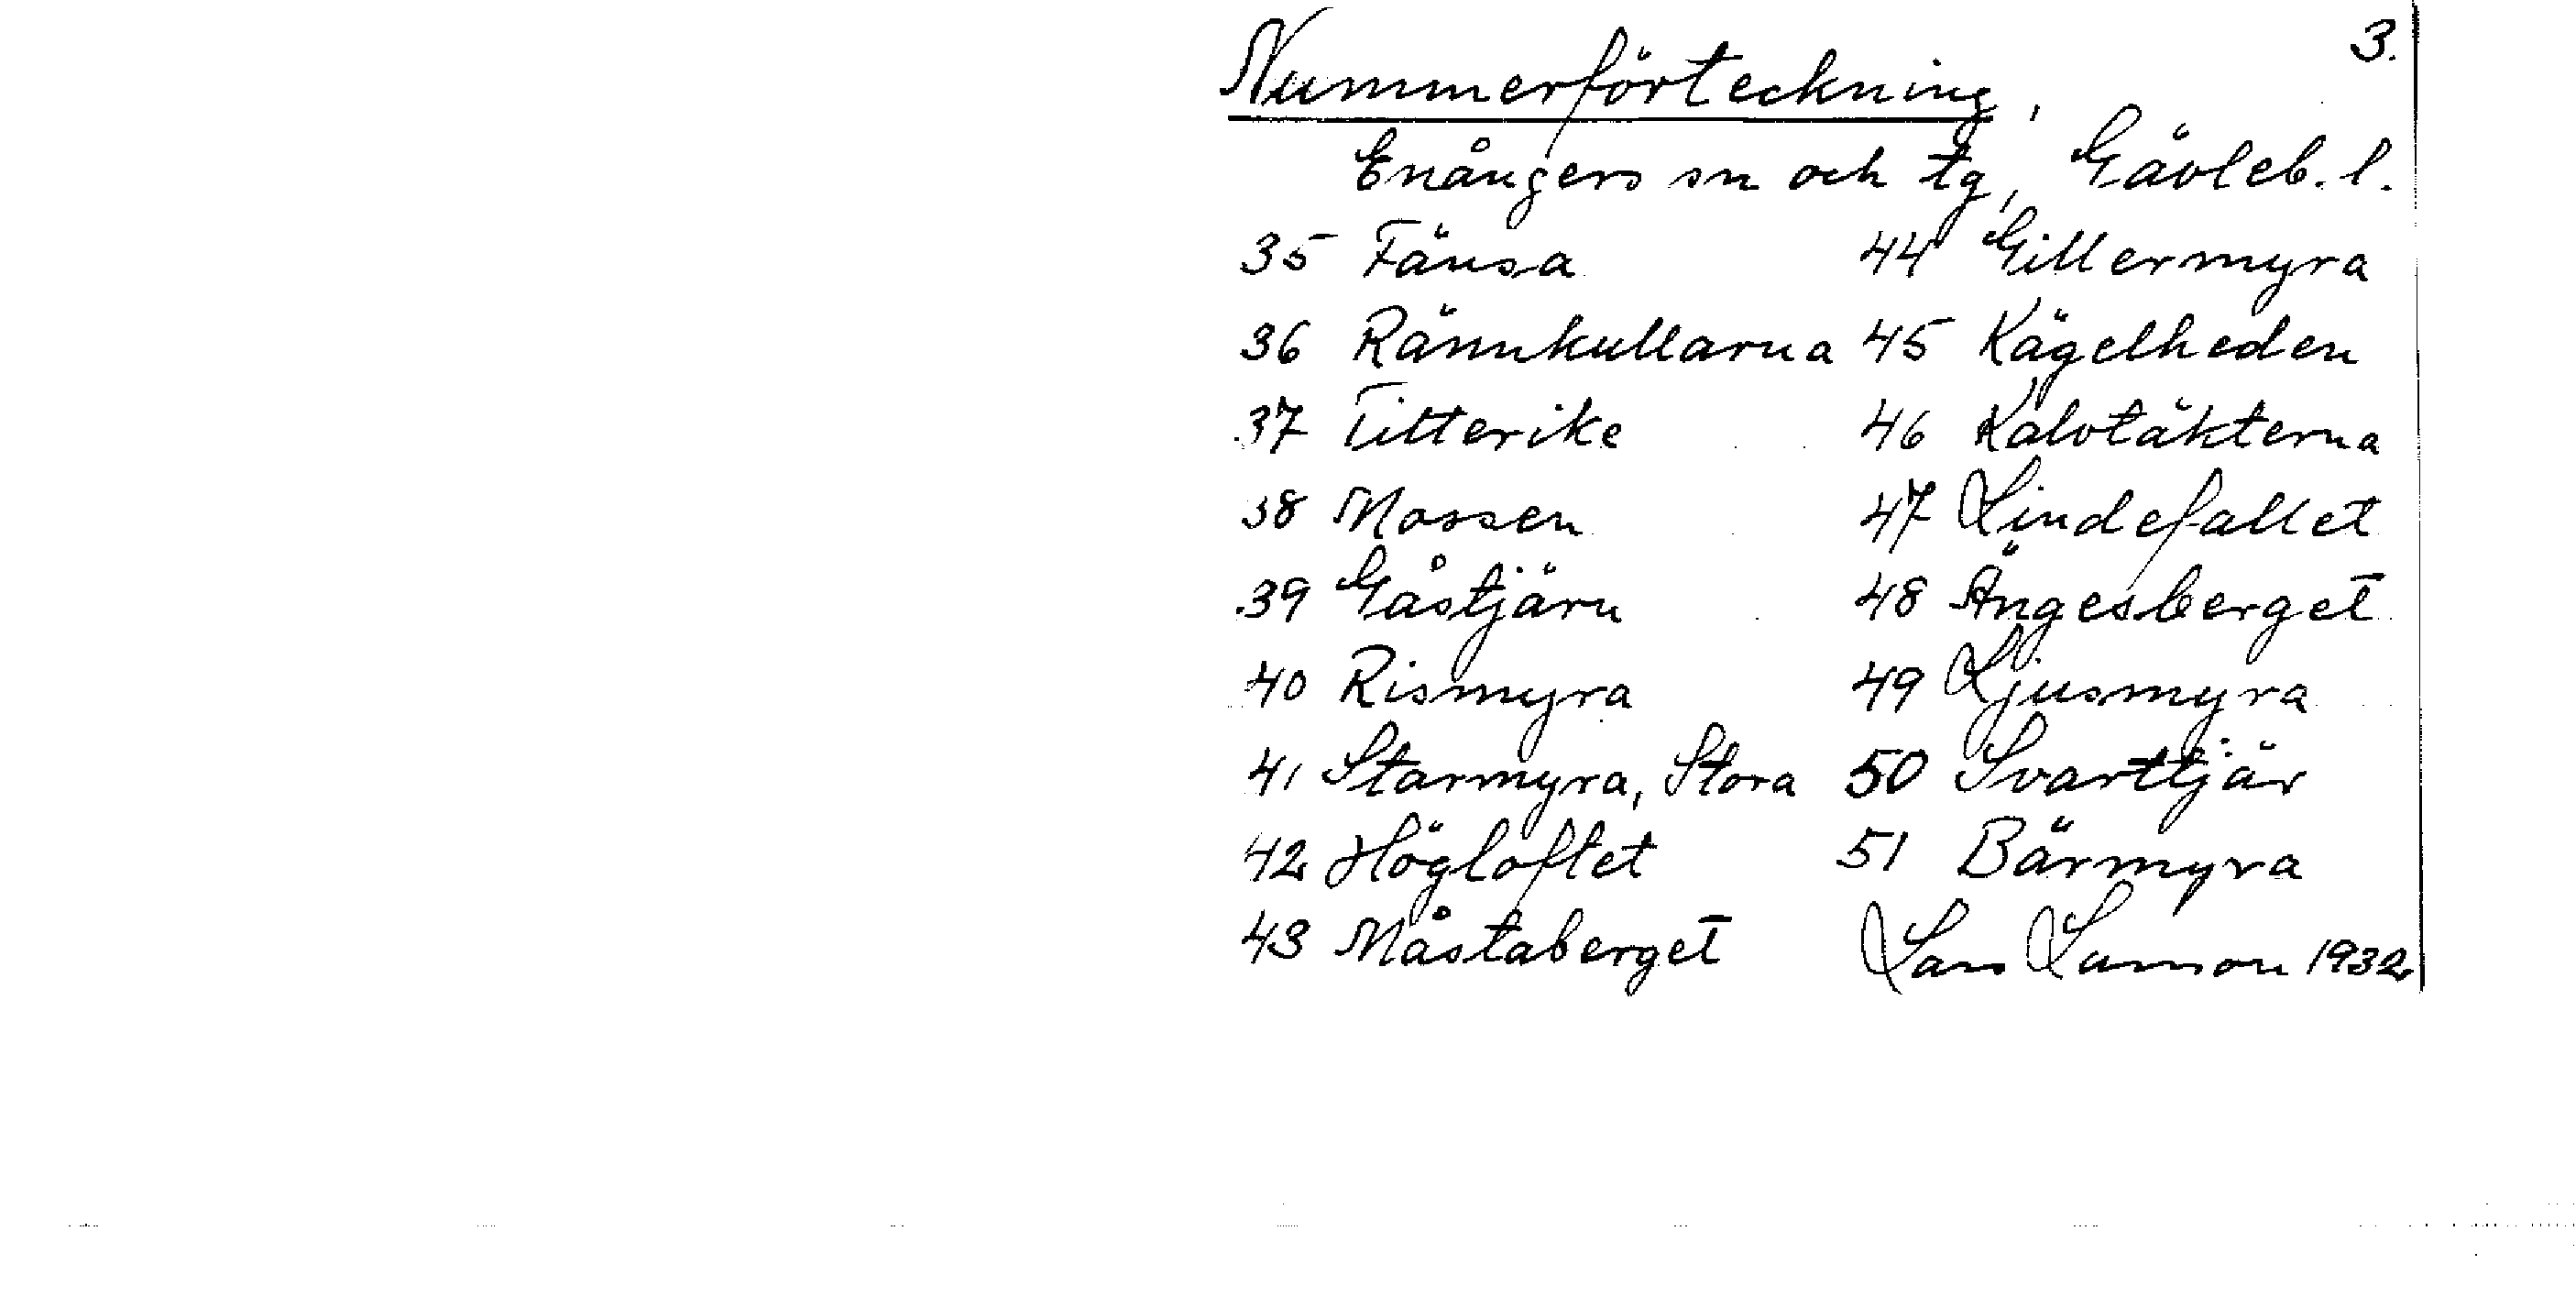 3.
Nummerförteckning,
Enångers sn och tg, Gävleb. l.
35 Fänsa
36 Rännkullarna
37 Titterike
38 Mossen
39 Gåstjärn
40 Rismyra
41 Starmyra, Stora
42 Högloftet
43 Måstaberget
44 Gillermyra
45 Kägelheden
46 Kalvtäkterna
47 Lindefallet
48 Ängesberget
49 Ljusmyra
50 Svarttjär
51 Bärmyra
Lars 1932